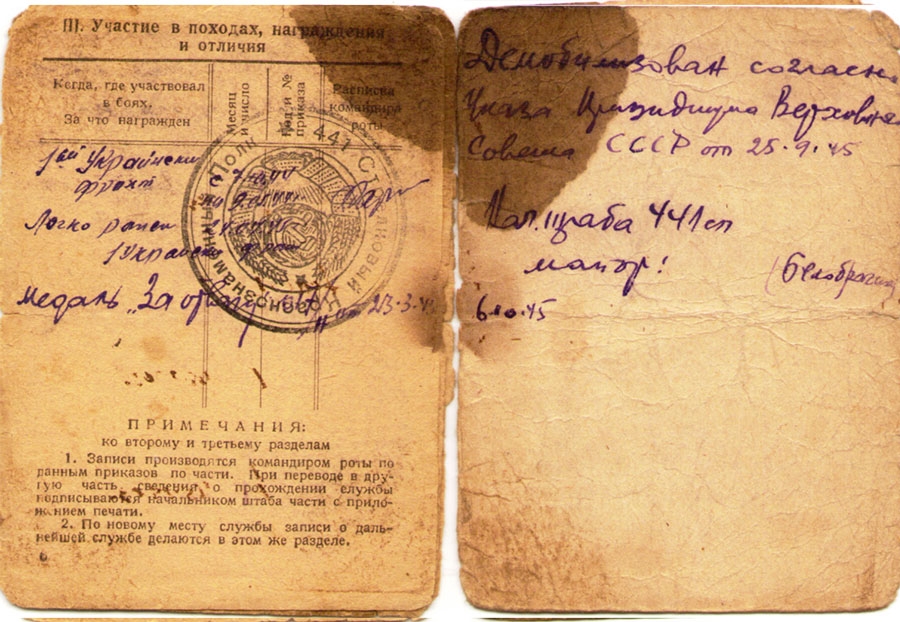 III. Участие в походах, награждения
и отличия
Когда, где участвовал
в боях.
За что награжден
Месяц
и число
Год и №
приказа
Расписка
командира
роты
441 Стрелковый
Краснознаменный полк
1ый Украинский
фронт
Легко ранен
1 Украинск
медаль „За отвагу" 23-3-45
ПРИМЕЧАНИЯ:
ко второму и третьему разделам
1. Записи производятся командиром роты по
данным приказов по части. При переводе в дру-
гую часть сведения о прохождении службы
подписываются начальником штаба части с прило-
жением печати.
2. По новому месту службы записи о даль-
нейшей службе делаются в этом же разделе.
6
Демобилизован согласно
Указа Призидиума Верховная
Совета СССР от 25-9-45
Нач. штаба 441 сп
майор!
6.10.45